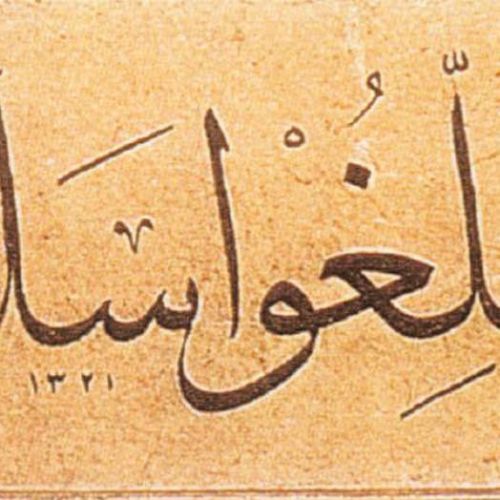 لِّغُوْا سَل
١٣٢١